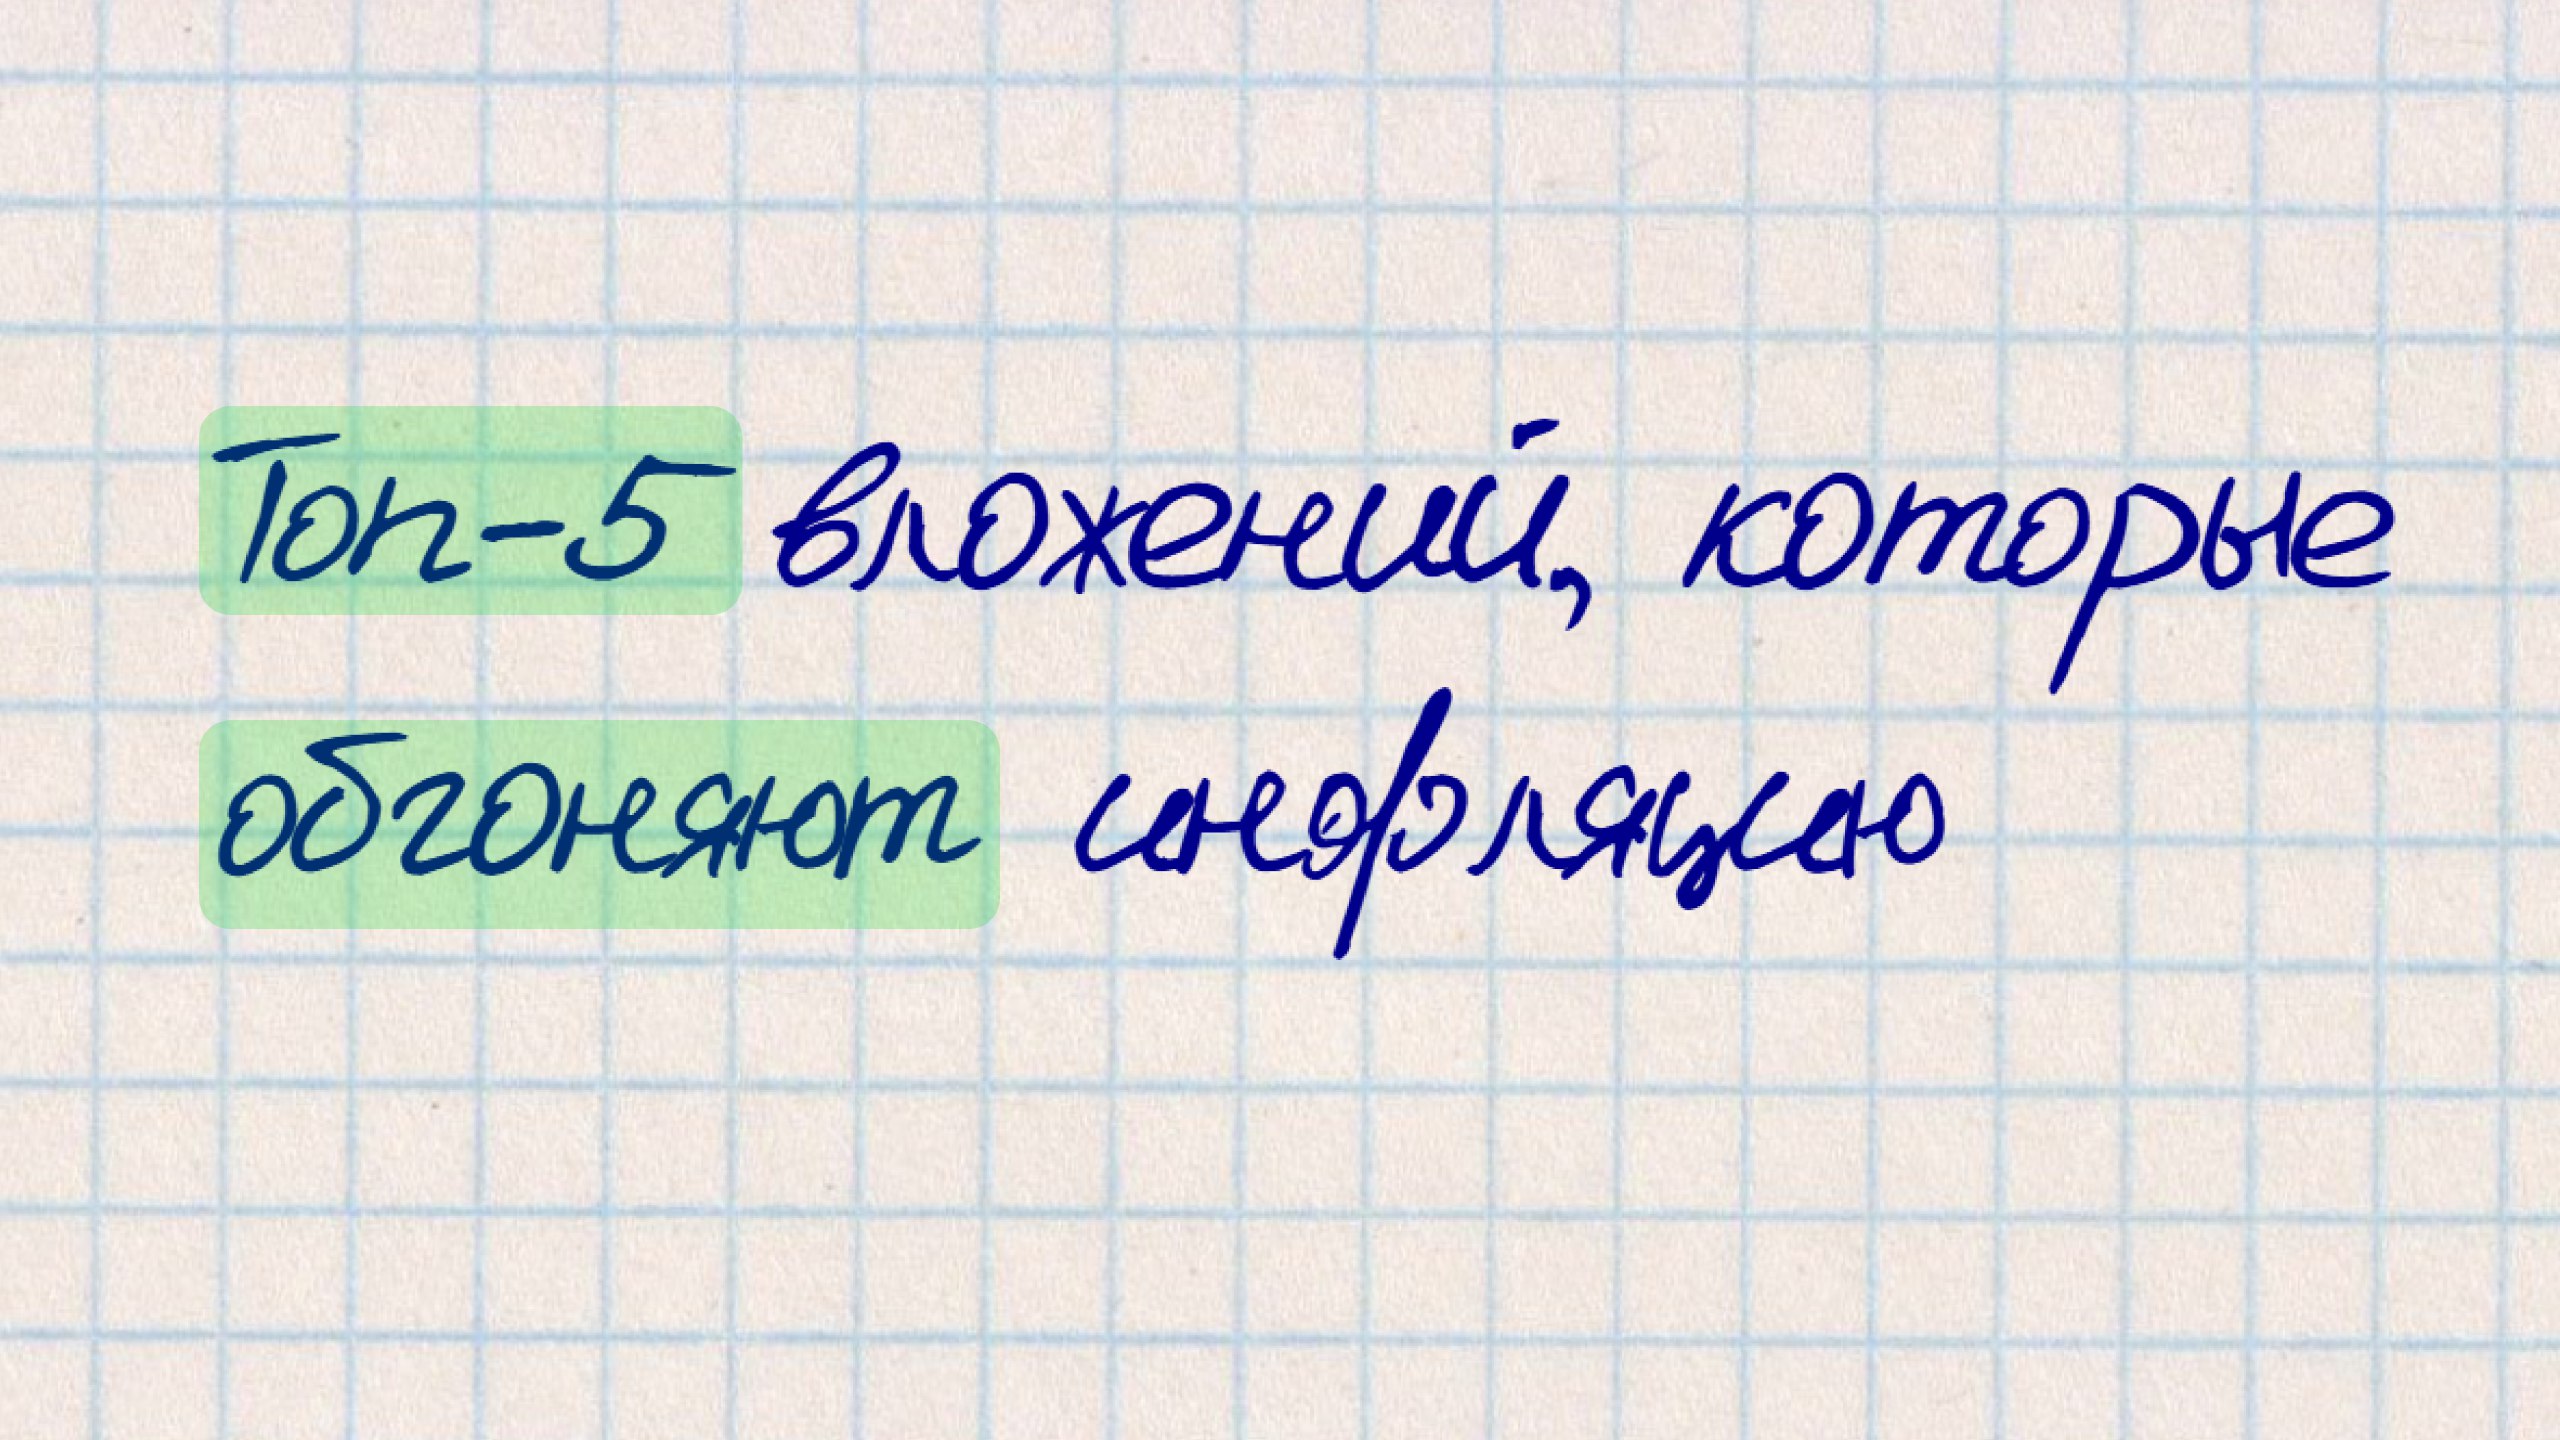 Топ-5 вложений, которые
обгоняют инфляцию